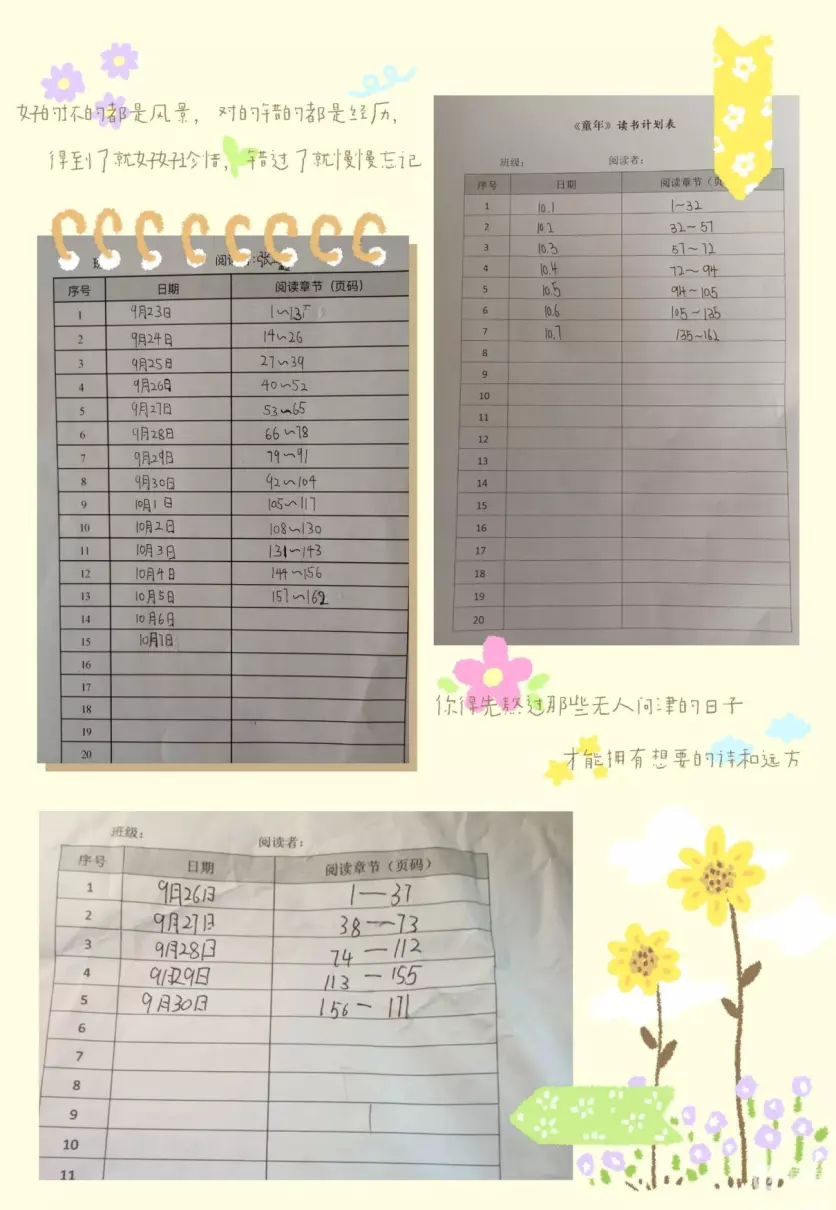 好的坏的都是风景，对的错的都是经历，
得到了就好好珍惜，错过了就慢慢忘记
《童年》读书计划表
班级： 阅读者：
序号 日期 阅读章节（页
1 10.1 1～32
2 10.2 32～57
3 10.3 57～72
4 10.4 72～94
5 10.5 94～105
6 10.6 105～135
7 10.7 135～162
8
9
10
11
12
13
14
15
16
17
18
19
20
序号 日期 阅读章节（页码）
1 9月23日 1～13
2 9月24日 14～26
3 9月25日 27～39
4 9月26日 40～52
5 9月27日 53～65
6 9月28日 66～78
7 9月29日 79～91
8 9月30日 92～104
9 10月1日 105～117
10 10月2日 108～130
11 10月3日 131～143
12 10月4日 144～156
13 10月5日 157～162
14 10月6日
15 10月7日
16
17
18
19
20
你得先熬过那些无人问津的日子
才能拥有想要的诗和远方
班级： 阅读者：
序号 日期 阅读章节（页码）
1 9月26日 1—37
2 9月27日 38—73
3 9月28日 74—112
4 9月29日 113—155
5 9月30日 156—171
6
7
8
9
10
11